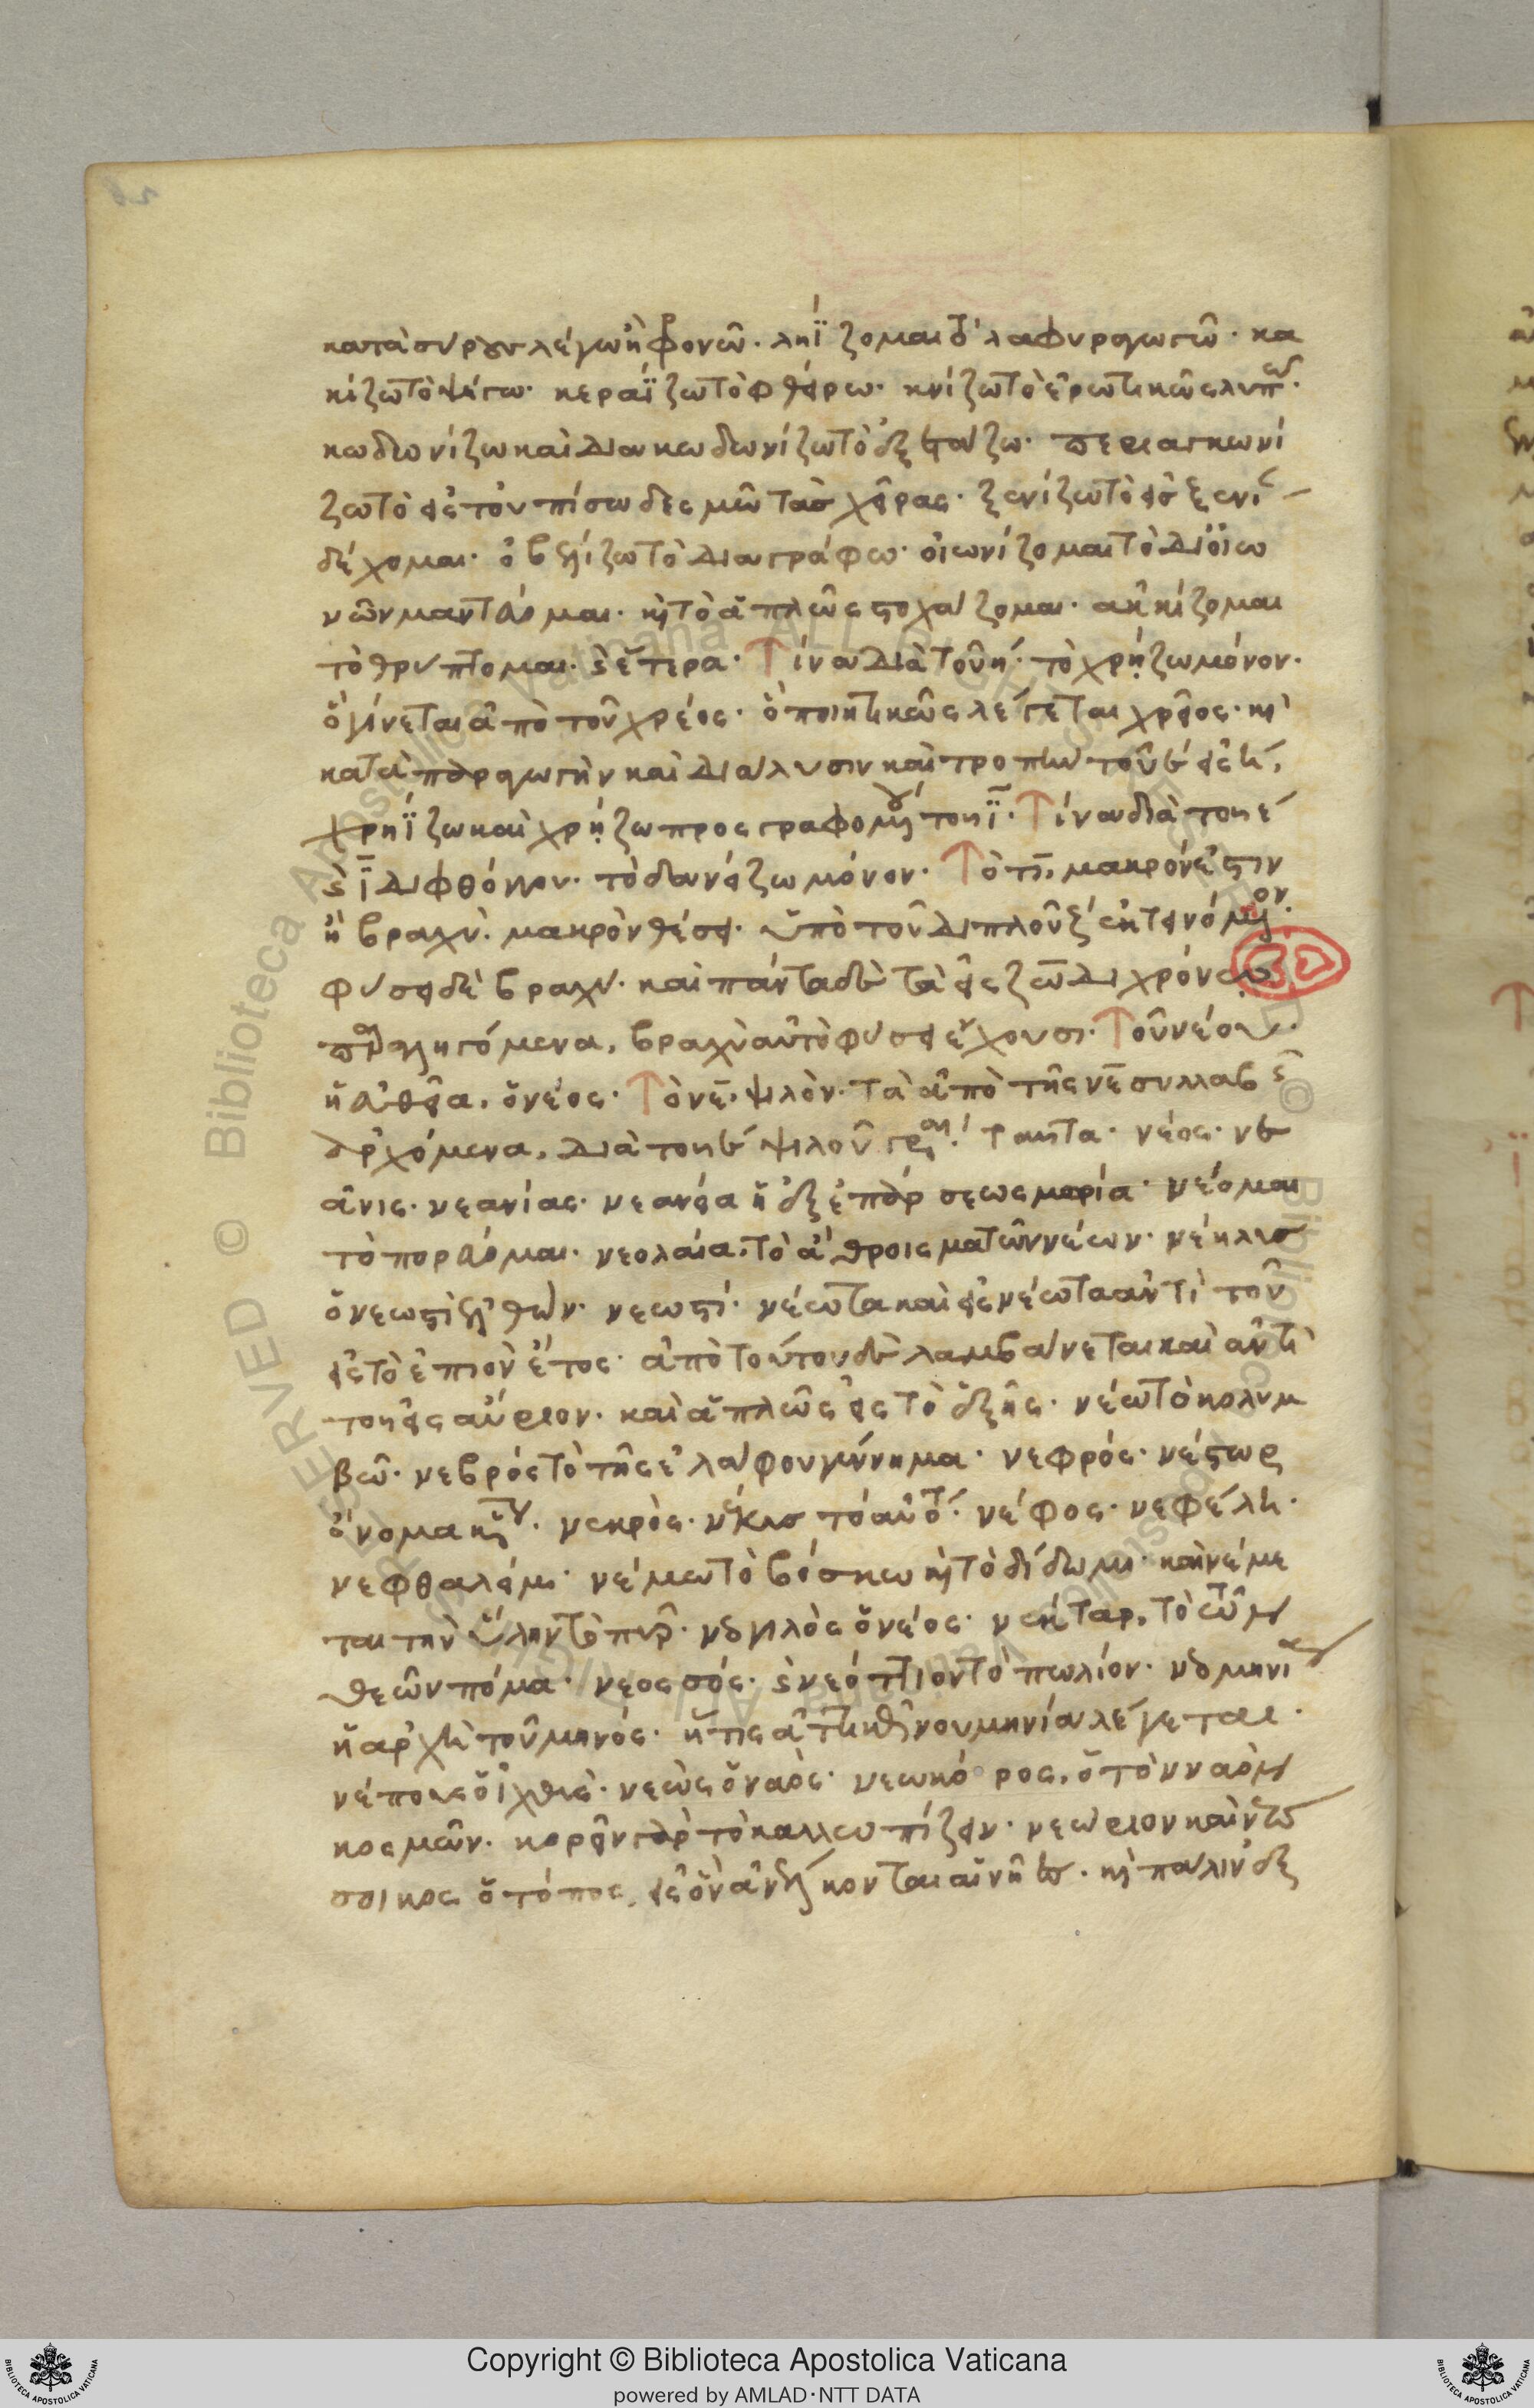 κατὰ συργον λέγω ἢ φρονῶ· ληΐζομαι τὸ λαφυραγωγῶ· κα
κίζω τὸ ψέγω· κεραΐζω τὸ φθείρω· κνίζω τὸ ἐρωτικῶς λυπῶ·
κωδωνίζω καὶ διακωδωνίζω τὸ ἐξετάζω· περιαγκωνί
ζω τὸ εἰς τὸν πίσω δεσμῶ τὰς χεῖρας· ξενίζω τὸ εἰς ξενί
δέχομαι· ὀβελίζω τὸ διαγράφω· οἰωνίζομαι τὸ δι' οἰω
νῶν μαντεύομαι· καὶ τὸ ἁπλῶς στοχάζομαι· ἀκκίζομαι
τὸ θρύπτομαι· καὶ ἕτερα· τίνα διὰ τοῦ η· τὸ χρῄζω μόνον·
ὃ γίνεται ἀπὸ τοῦ χρέος· ὃ ποιητικῶς λέγεται χρεῖος· καὶ
κατὰ παραγωγὴν καὶ διάλυσιν καὶ τροπὴν τοῦ ε εἰς η,
χρηΐζω καὶ χρῄζω προσγραφομένου τοῦ ϊ· τίνα διὰ τοῦ ε
καὶ ϊ διφθόγγου· τὸ δανείζω μόνον· τὸ τι, μακρόν ἐστιν
ἢ βραχύ· μακρὸν θέσει· ὑπὸ τοῦ διπλοῦ ζ ἐκτεινόμενον·
φύσει δὲ βραχύ· καὶ πάντα δὲ τὰ εἰς ζω διχρόνω
παραληγόμενα, βραχὺ αὐτὸ φύσει ἔχουσι· τοῦ νέου·
ἡ εὐθεῖα, ὁ νέος· τὸ νε, ψιλόν· τὰ ἀπὸ τῆς νε συλλαβῆς
ἀρχόμενα, διὰ τοῦ ε ψιλοῦ γράφεται· ταῦτα· νέος· νε
ᾶνις· νεανίας· νεανεία ἡ ἐξ ἐπάρσεως μωρία· νέομαι
τὸ πορεύομαι· νεολαία, τὸ ἄθροισμα τῶν νέων· νέηλυς
ὁ νεωστὶ ἐλθών· νεωστί· νέωτα καὶ εἰς νέωτα ἀντὶ τοῦ
εἰς τὸ ἐπιὸν ἔτος· ἀπὸ τούτου δὲ λαμβάνεται καὶ ἀντὶ
τοῦ εἰς αὔριον· καὶ ἁπλῶς εἰς τὸ ἑξῆς· νέω τὸ κολυμ
βῶ· νεβρός τὸ τῆς ἐλάφου γέννημα· νεφρός· νέστωρ
ὄνομα κύριον· νεκρὸς· νέκυς τὸ αὐτό· νέφος· νεφέλη·
νεφθαλείμ· νέμω τὸ βόσκω καὶ τὸ δίδωμι· καὶ νέμε
ται τὴν ὕλην τὸ πῦρ· νεογιλὸς ὁ νέος· νέκταρ, τὸ τῶν
θεῶν πόμα· νεοσσός· καὶ νεόττιον τὸ πωλίον· νεομηνία
ἡ ἀρχὴ τοῦ μηνός· ἥτις ἀττικῶς νουμηνία λέγεται·
νέπους ὁ ἰχθύς· νεὼς ὁ ναὸς· νεωκόρος, ὁ τὸν ναὸν
κοσμῶν· κορεῖν γὰρ τὸ καλλωπίζειν· νεώριον καὶ νεώ
σοικος ὁ τόπος, εἰς ὃν ἀνέλκονται αἱ νῆες· καὶ πάλιν ἐξ